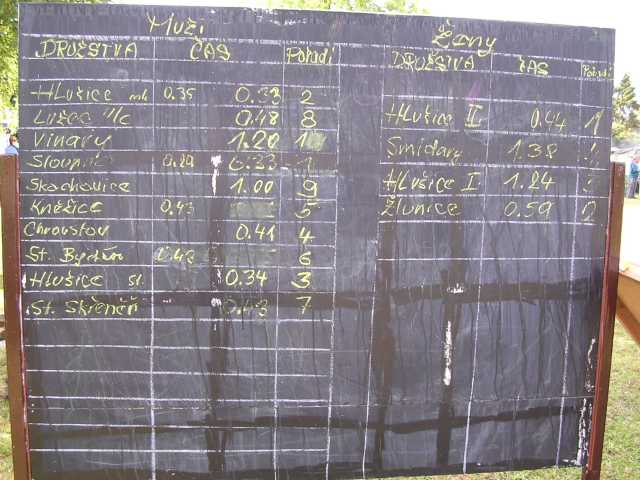 Muži
DRUŽSTVA ČAS Pořadí
Hlušice ml. 0.35 0.33 2
Lužec n/c 0.48 8
Vinary 1.20
Sloupno 0.29 0.33 1
Skochovice 1.00 9
Kněžice 0.43 5
Chroustov 0.41 4
St. Bydžov 0.42 6
Hlušice st. 0.34 3
St. Skřeněř 0.43 7
Ženy
DRUŽSTVA ČAS Pořadí
Hlušice II 0.44 1
Smidary 1.38
Hlušice I 1.24 3
Žlunice 0.59 2